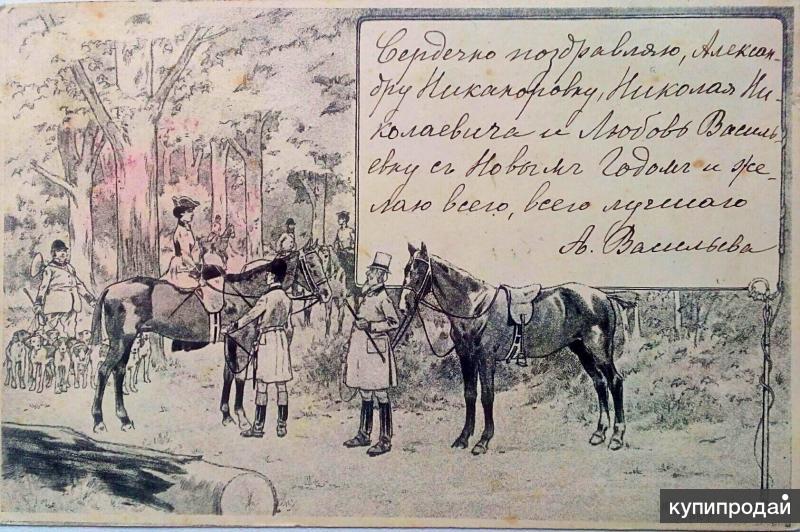 Сердечно поздравляю, Алексан-
дру Никаноровну, Николая Ни-
колаевича и Любовь Василь-
евну съ Новымъ Годомъ и же-
лаю всего, всего лучшаго
А. Васильева
купипродай